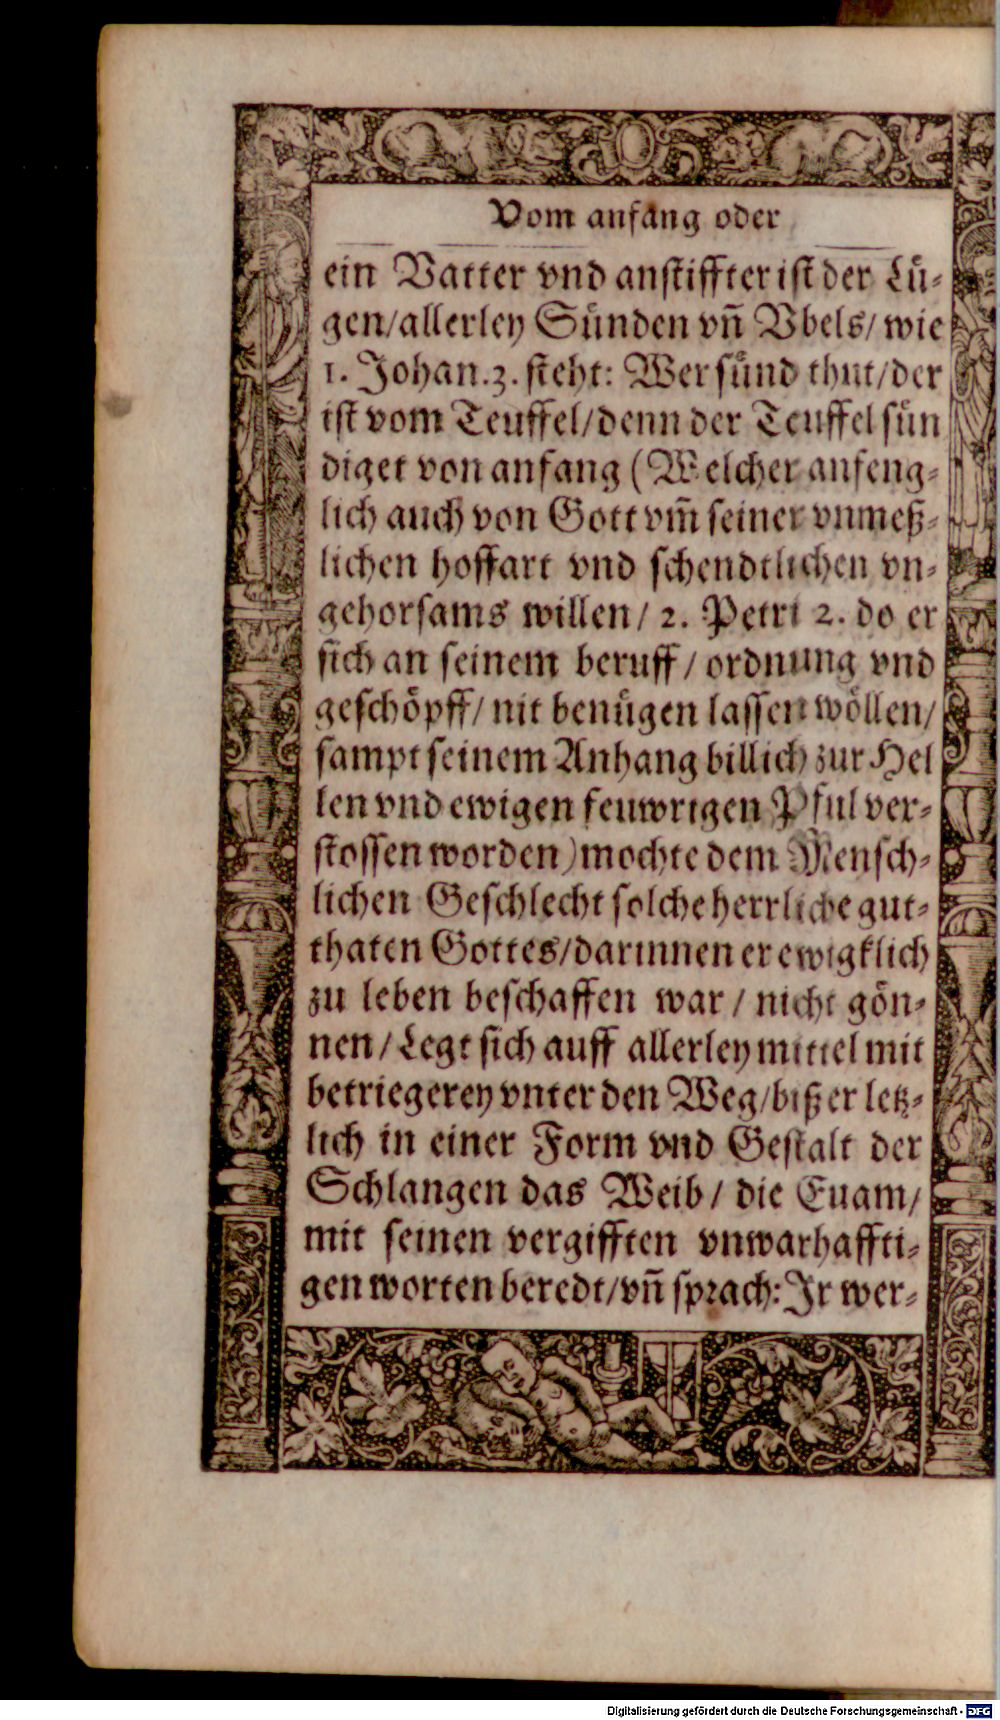 Vom anfang oder
ein Vatter vnd anstiffter ist der Luͤ-
gen/allerley Suͤnden vñ Vbels/ wie
1. Johan.3. steht: Wer suͤnd thut/der
ist vom Teuffel/denn der Teuffel suͤn
diget von anfang (Welcher anfeng-
lich auch von Gott vm̃ seiner vnmeß-
lichen hoffart vnd schendtlichen vn-
gehorsams willen/ 2. Petri 2. do er
sich an seinem beruff/ ordnung vnd
geschoͤpff/ nit benuͤgen lassen woͤllen/
sampt seinem Anhang billich zur Hel
len vnd ewigen feuwrigen Pful ver-
stossen worden) mochte dem Mensch-
lichen Geschlecht solche herrliche gut-
thaten Gottes/darinnen er ewigklich
zu leben beschaffen war / nicht goͤn-
nen/ Legt sich auff allerley mittel mit
betriegerey vnter den Weg/biß er letz-
lich in einer Form vnd Gestalt der
Schlangen das Weib/ die Euam/
mit seinen vergifften vnwarhaffti-
gen worten beredt/vñ sprach: Jr wer-
Digitalisierung gefördert durch die Deutsche Forschungsgemeinschaft - DFG